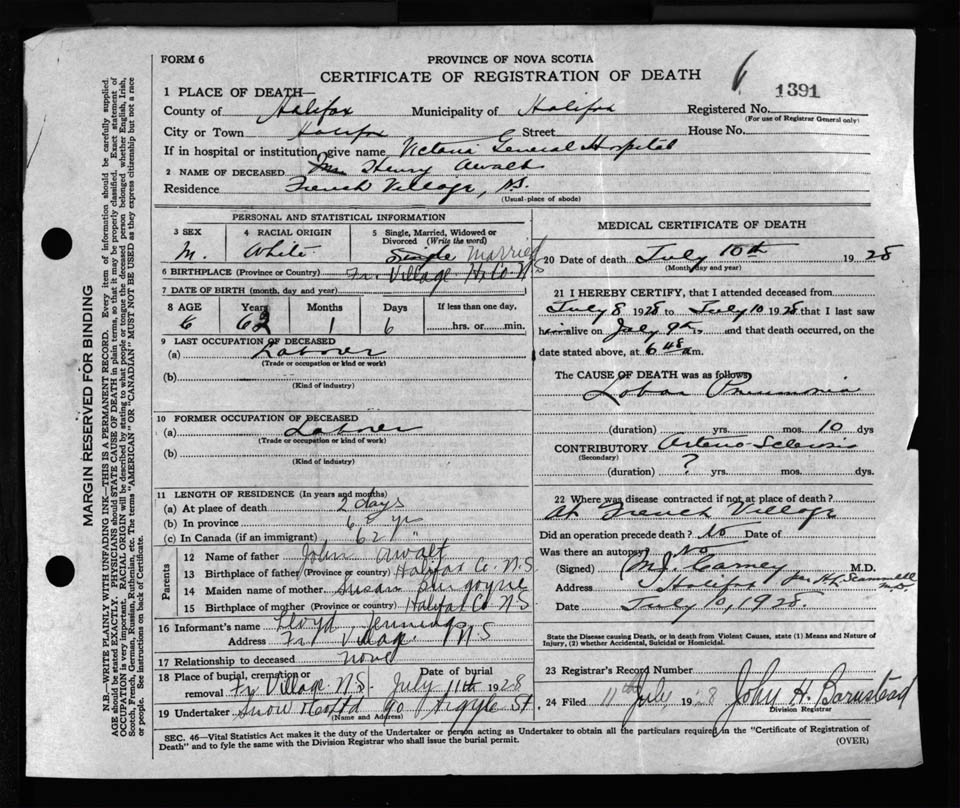 FORM 6
PROVINCE OF NOVA SCOTIA
CERTIFICATE OF REGISTRATION OF DEATH
6
1391
1 PLACE OF DEATH—
County of Halifax Municipality of Halifax Registered No.
(For use of Registrar General only)
City or Town Halifax Street House No.
If in hospital or institution, give name Victoria General Hospital
2 NAME OF DECEASED Henry Awalt
Residence French Village, N.S.
(Usual place of abode)
PERSONAL AND STATISTICAL INFORMATION
3 SEX
M.
4 RACIAL ORIGIN
White
5 Single, Married, Widowed or Divorced (Write the word)
Single Married
6 BIRTHPLACE (Province or Country) Fr. Village Hx. Co. N.S
7 DATE OF BIRTH (month, day and year)
8 AGE Years Months Days If less than one day,
6 62 1 6 hrs. or min.
9 LAST OCCUPATION OF DECEASED
(a) Laborer
(Trade or occupation or kind of work)
(b)
(Kind of industry)
10 FORMER OCCUPATION OF DECEASED
(a) Laborer
(Trade or occupation or kind of work)
(b)
(Kind of industry)
11 LENGTH OF RESIDENCE (In years and months)
(a) At place of death 2 days
(b) In province 62 yr
(c) In Canada (if an immigrant) 62 "
Parents
12 Name of father John Awalt
13 Birthplace of father (Province or country) Halifax Co. N.S.
14 Maiden name of mother Susan Burgoyne
15 Birthplace of mother (Province or country) Halifax Co N S
16 Informant's name Lloyd Jennings
Address Fr. Village N S
17 Relationship to deceased none
18 Place of burial, cremation or removal Fr. Village. N.S. Date of burial July 11th 1928
19 Undertaker Snow & Co Ltd 90 Argyle St.
(Name and Address)
MEDICAL CERTIFICATE OF DEATH
20 Date of death July 10th 1928
(Month, day and year)
21 I HEREBY CERTIFY, that I attended deceased from
July 8 1928 to July 10 1928 that I last saw
him alive on July 9th 19 and that death occurred, on the
date stated above, at 6 45 a m.
The CAUSE OF DEATH was as follows:
Lobar Pneumonia
(duration) yrs. mos. 10 dys
CONTRIBUTORY Arterio-Sclerosis
(Secondary)
(duration) ? yrs. mos. dys.
22 Where was disease contracted if not at place of death?
At French Village
Did an operation precede death? No Date of
Was there an autopsy? No
(Signed) M.J. Carney M.D.
Address Halifax per H.L. Scammell M.D.
Date July 10, 1928.
State the Disease causing Death, or in death from Violent Causes, state (1) Means and Nature of Injury, (2) whether Accidental, Suicidal or Homicidal.
23 Registrar's Record Number
24 Filed 11th July, 1928 John H. Barnstead
Division Registrar
SEC. 46—Vital Statistics Act makes it the duty of the Undertaker or person acting as Undertaker to obtain all the particulars required in the "Certificate of Registration of
Death" and to fyle the same with the Division Registrar who shall issue the burial permit.
(OVER)
MARGIN RESERVED FOR BINDING
N.B.—WRITE PLAINLY WITH UNFADING INK—THIS IS A PERMANENT RECORD. Every item of information should be carefully supplied.
AGE should be stated EXACTLY. PHYSICIANS should STATE CAUSE OF DEATH in plain terms, so that it may be properly classified. Exact statement of
OCCUPATION is very important. RACIAL ORIGIN will be described by stating to what people or tongue the deceased person belonged whether English, Irish,
Scotch, French, German, Russian, Ruthenian, etc. The terms "AMERICAN" OR "CANADIAN" MUST NOT BE USED as they express citizenship but not a race
or people. See instructions on back of Certificate.